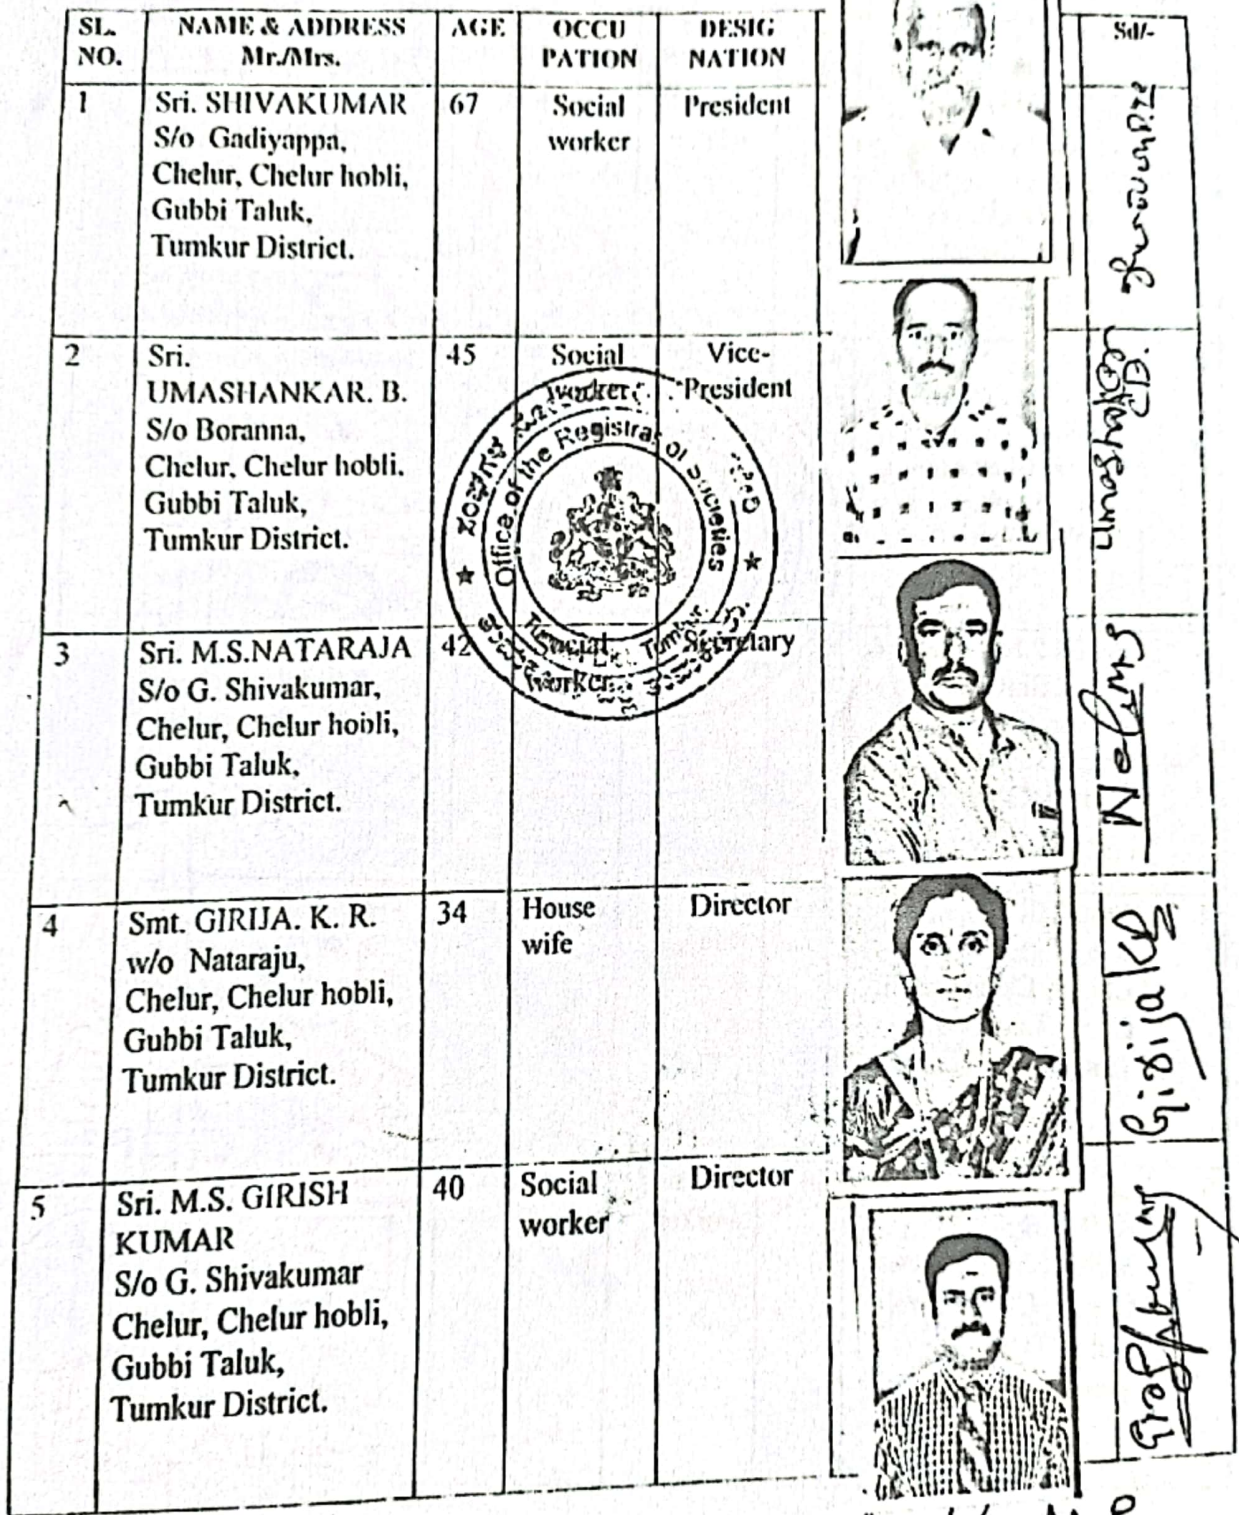 SL. NO.
NAME & ADDRESS Mr./Mrs.
AGE
OCCU PATION
DESIG NATION
Sd/-
1
Sri. SHIVAKUMAR
S/o Gadiyappa,
Chelur, Chelur hobli,
Gubbi Taluk,
Tumkur District.
67
Social
worker
President
2
Sri.
UMASHANKAR. B.
S/o Boranna,
Chelur, Chelur hobli.
Gubbi Taluk,
Tumkur District.
45
Social
worker
Vice-
President
Umashankar B.
Office of the Registrar of Societies
3
Sri. M.S.NATARAJA
S/o G. Shivakumar,
Chelur, Chelur hobli,
Gubbi Taluk,
Tumkur District.
42
Social
worker
Secretary
4
Smt. GIRIJA. K. R.
w/o Nataraju,
Chelur, Chelur hobli,
Gubbi Taluk,
Tumkur District.
34
House
wife
Director
Girija KR
5
Sri. M.S. GIRISH
KUMAR
S/o G. Shivakumar
Chelur, Chelur hobli,
Gubbi Taluk,
Tumkur District.
40
Social
worker
Director